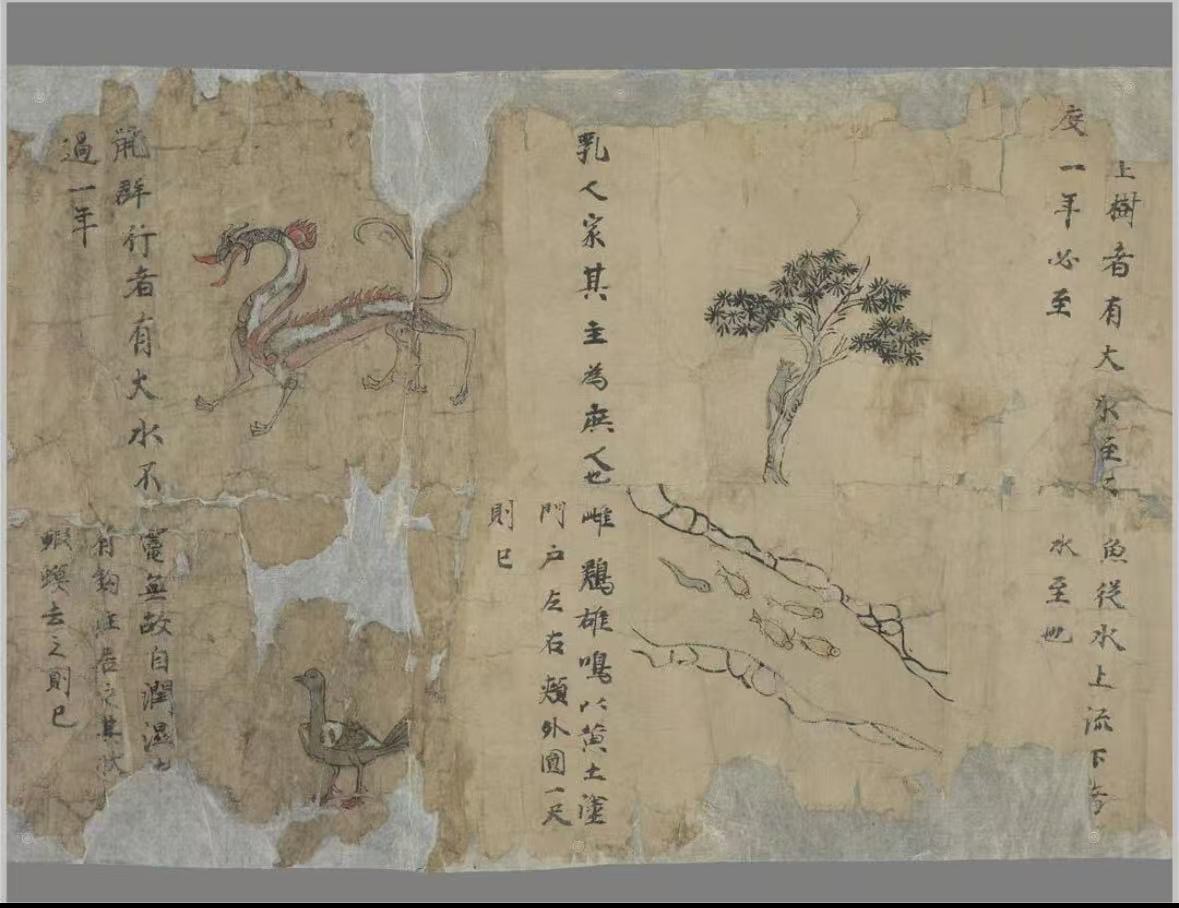 上樹者有大水至
度一年必至
魚從水上流下者
水至也
乳人家其主為庶人也
雌鷄雄鳴以黄土塗
門户左右頰外圓一尺
則已
鼠群行者有大水不
過一年
竈無故自潤濕
有鈎注居之其狀
蝦蟆去之則已